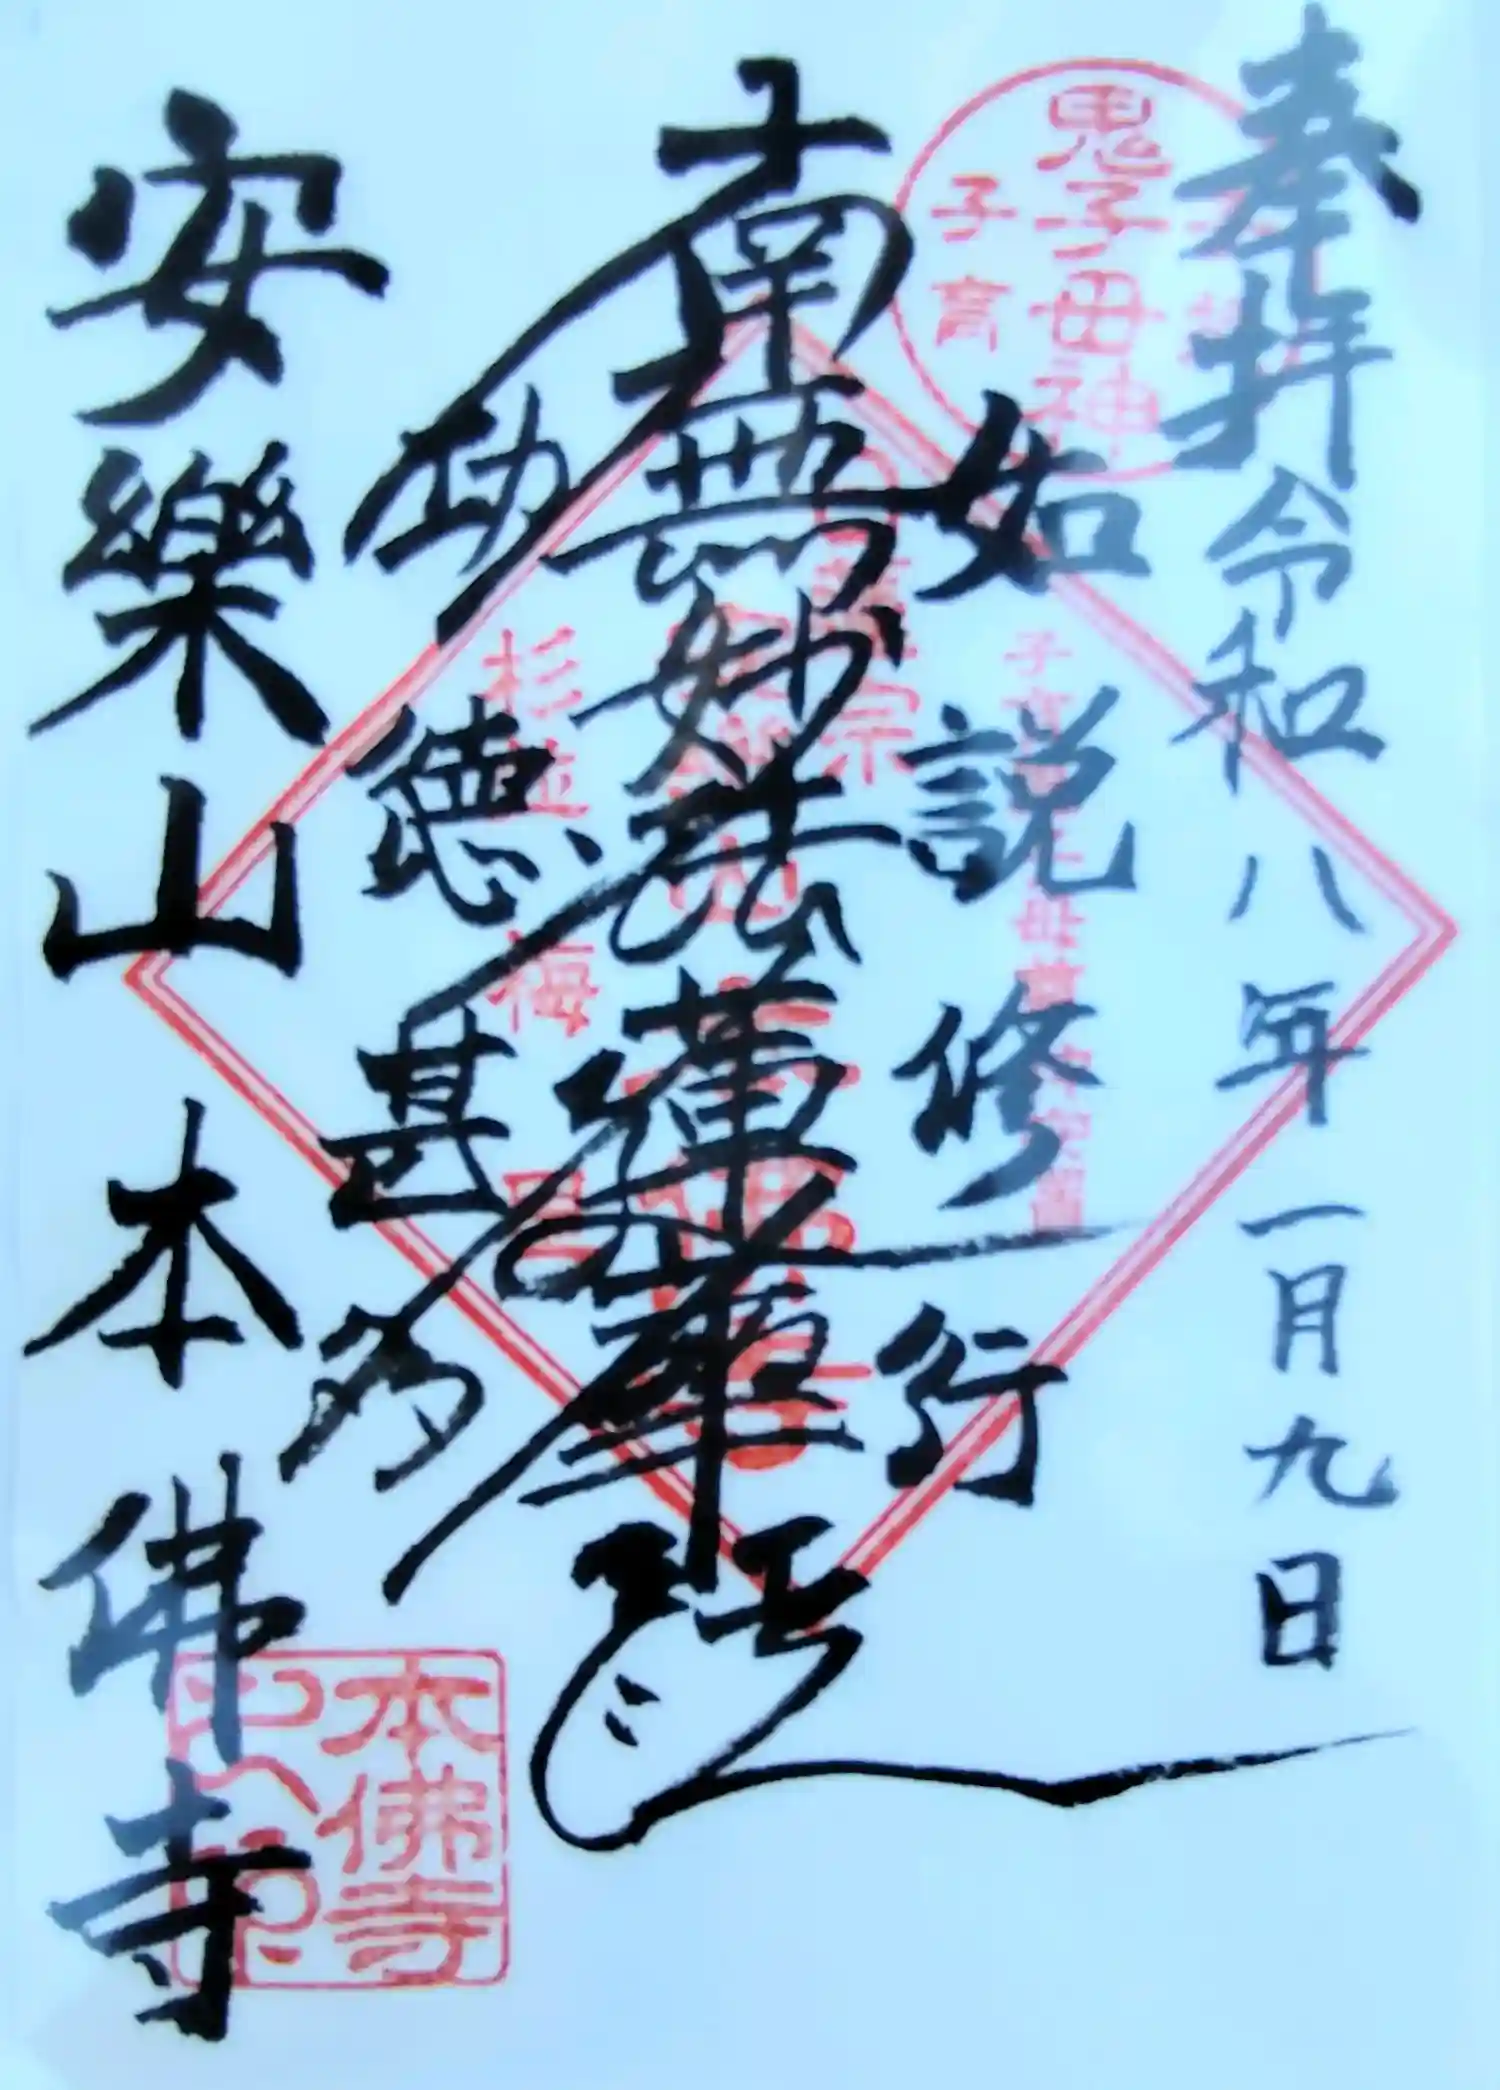 奉拝 令和八年一月九日
如説修行
南無妙法蓮華経
功徳甚多
安樂山本佛寺
鬼子母神
子育
杉並
梅里
本佛寺